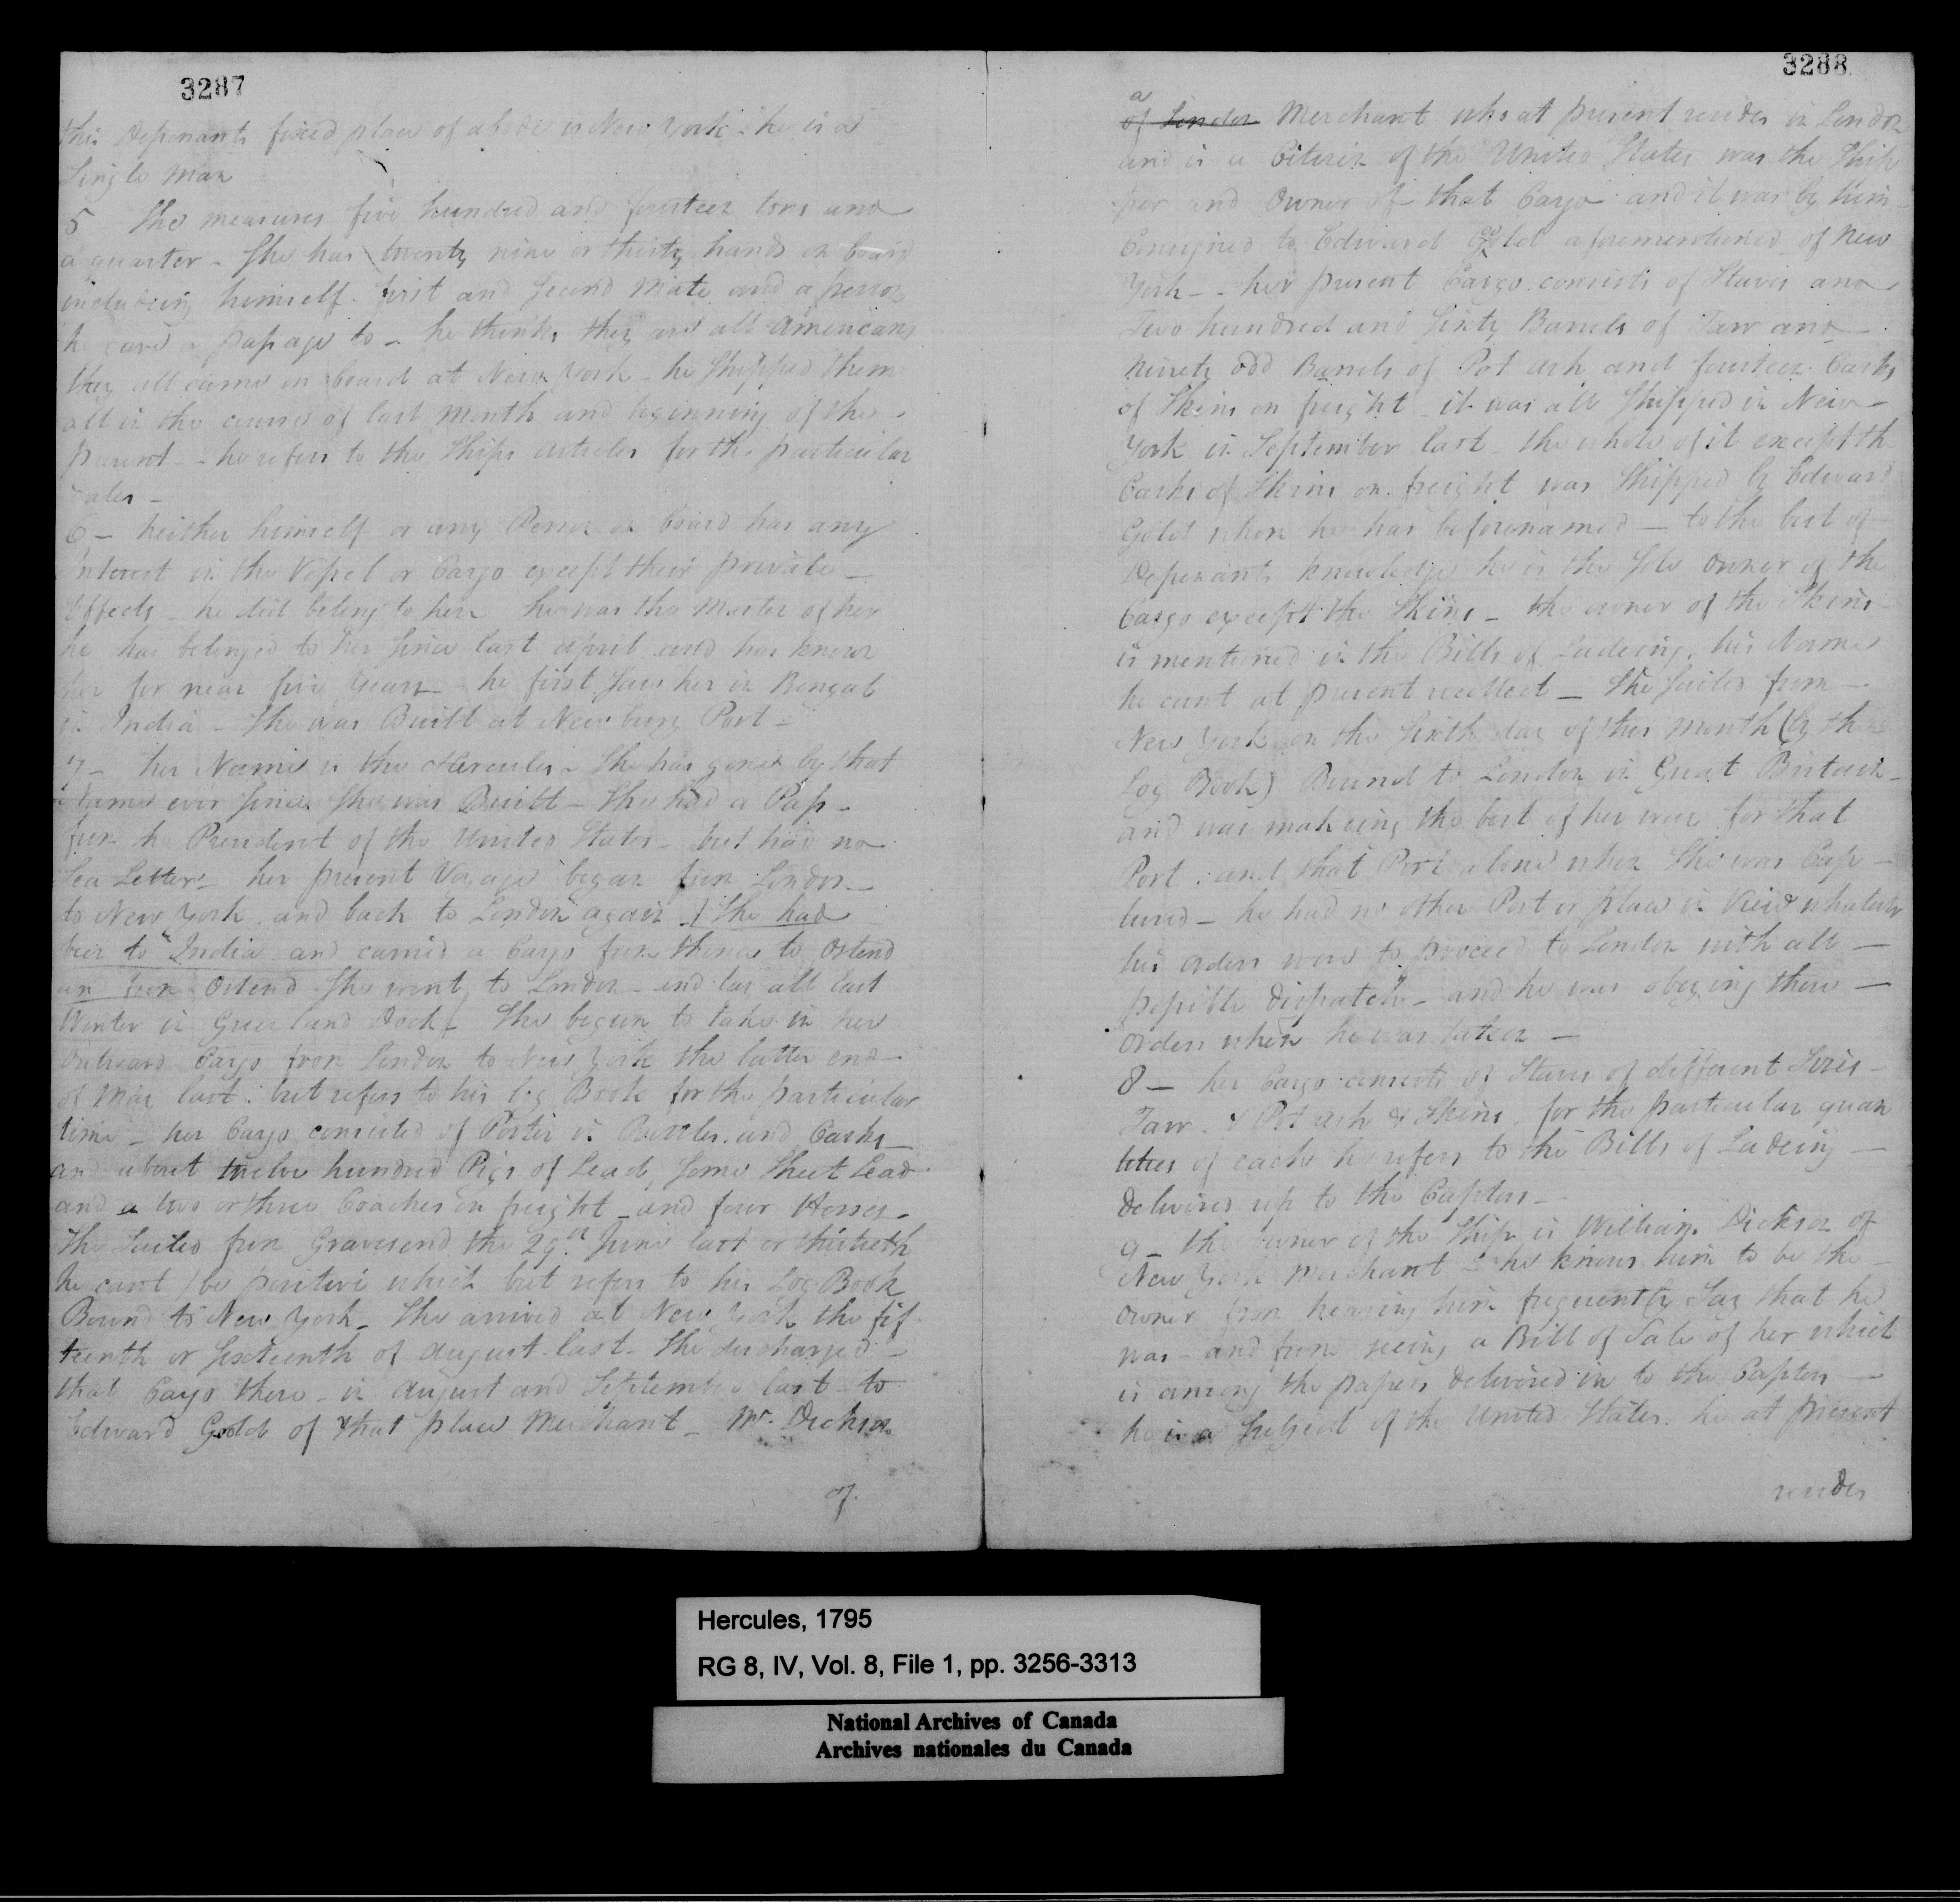 3287
this Deponants fixed place of abode is New York - he is a
Single Man
5 - She measures five hundred and fourteen tons and
a quarter - She has twenty nine or thirty hands on board
includeing himself. first and Second Mate and a person
he gave a passage to - he thinks they are all Americans
they all came on board at New York - he Shipped them
all in the course of last Month and beginning of the
present - he refers to the Ships articles for the particular
dates -
6 - Neither himself or any Person on board has any
Interest in the Vessel or Cargo except their private -
Effects - he did belong to her he was the Master of her
he has belonged to her Since last April and has known
her for near five Years - he first Saw her in Bengal
in India - She was Built at Newbury Port -
7 - her Name is the Hercules - She has gone by that
Name ever Since She was Built - She had a Pass -
from he President of the United States - but had no
Sea Letter - her present Voyage began from London -
to New York and back to London again - ( She had
been to India and carried a Cargo from thence to Ostend
from Ostend She went to London - and lay all last
Winter in Greenland Dock ) - She begun to take in her
outward Cargo from London to New York the latter end
of May last : but refers to his log Book for the particular
time - her Cargo consisted of Porter in Bottles and Casks -
and about twelve hundred Pigs of Lead, Some Sheet Lead
and a two or three Coaches on freight - and four Horses -
She Sailed from Gravesend the 29th June last or thirtieth
he cant be positive which but refers to his Log Book
Bound to New York - She arrived at New York the fif
teenth or Sixteenth of August last - She discharged -
that Cargo there - in August and September last to
Edward Goold of that place Merchant - Mr. Dickson
of
3288
a
of London Merchant who at present resides in London
and is a Citizen of the United States was the Ship
per and Owner of that Cargo and it was by him
Consigned to Edward Goold aforementioned of New
York - - her present Cargo consists of Staves and
Two hundred and Sixty Barrels of Tarr and -
Ninety odd Barrels of Pot Ash and fourteen Casks
of Skins on freight - it was all Shipped in New -
York in September last - the whole of it except th
Casks of Skins on freight was Shipped by Edward
Goold whom he has beforenamed - to the best of
Deponants knowledge he is the Sole Owner of the
Cargo except the Skins - the owner of the Skins
is mentioned in the Bills of Ladeing, his Name
he cant at present recollect - She Sailed from -
New York on the Sixth day of this Month (by the
Log Book) Bound to London in Great Britain -
and was makeing the best of her way for that
Port : and that Port alone when She was Cap -
tured - he had no other Port or place in View whatever
his orders were to proceed to London with all -
possible dispatch - and he was obeying those -
Orders when he was taken -
8 - her Cargo consists of Staves of different Sizes -
Tarr - & Pot ash & Skins for the particular quan
tities of each he refers to the Bills of Ladeing -
delivered up to the Captors -
9 - the Owner of the Ship is William Dickson of
New York Merchant - he knows him to be the -
owner from hearing him frequently Say that he
was - and from seeing a Bill of Sale of her which
is among the papers delivered in to the Captors -
he is a Subject of the United States. he at present
resides
Hercules, 1795
RG 8, IV, Vol. 8, File 1, pp. 3256-3313
National Archives of Canada
Archives nationales du Canada